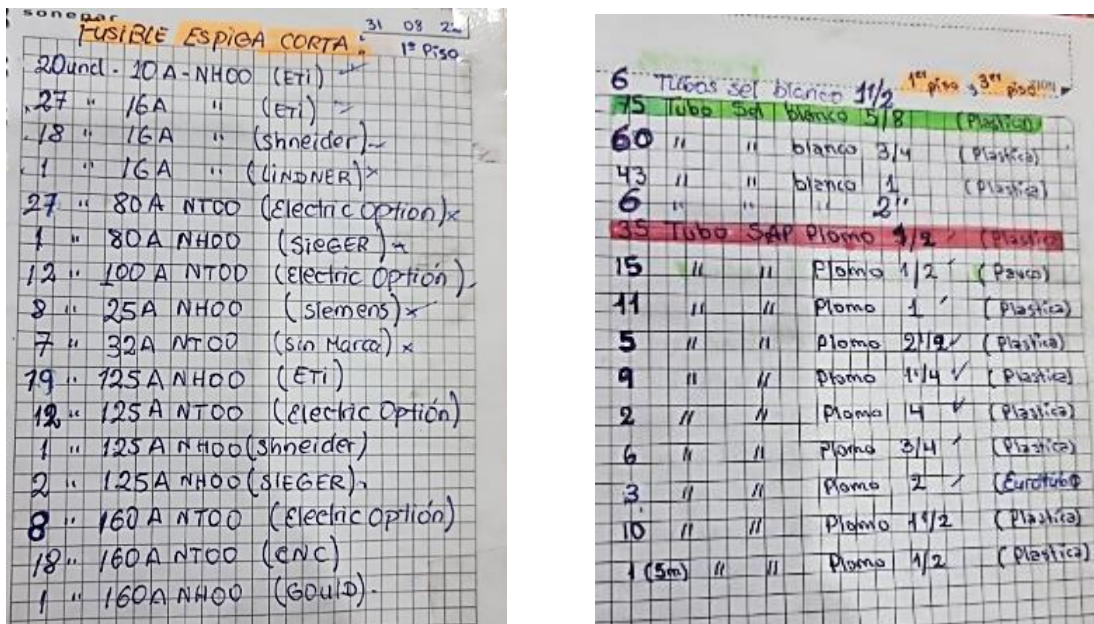 sonepar
FUSIBLE ESPIGA CORTA: 31 08 2
1º Piso
20und - 10A-NH00 (ETi)
27 " 16A " (ETi)
18 " 16A " (Shneider)
1 " 16A " (LINDNER)
27 " 80A NT00 (Electric Option)
1 " 80A NH00 (SIEGER)
12 " 100A NT00 (Electric Optión)
8 " 25A NH00 (siemens)
7 " 32A NT00 (Sin Marca)
19 " 125A NH00 (ETi)
12 " 125A NT00 (Electric Optión)
1 " 125A NH00 (Shneider)
2 " 125A NH00 (SIEGER)
8 " 160A NT00 (Electric Optión)
18 " 160A NT00 (CNC)
1 " 160A NH00 (GOULD).
6 Tubos sel blanco 1 1/2 1er piso, 3er piso
75 Tubo Sel blanco 5/8 (Plastica)
60 " " blanco 3/4 (Plastica)
43 " " blanco 1 (Plastica)
6 " " " 2"
35 Tubo SAP Plomo 1/2 (Plastica)
15 " " Plomo 1/2 (Pavco)
11 " " Plomo 1 (Plastica)
5 " " Plomo 2 1/2 (Plastica)
9 " " Plomo 1 1/4 (Plastica)
2 " " Plomo 4 (Plastica)
6 " " Plomo 3/4 (Plastica)
3 " " Plomo 2 (Eurotubo
10 " " Plomo 1 1/2 (Plastica)
1 (5m) " " Plomo 1/2 (Plastica)